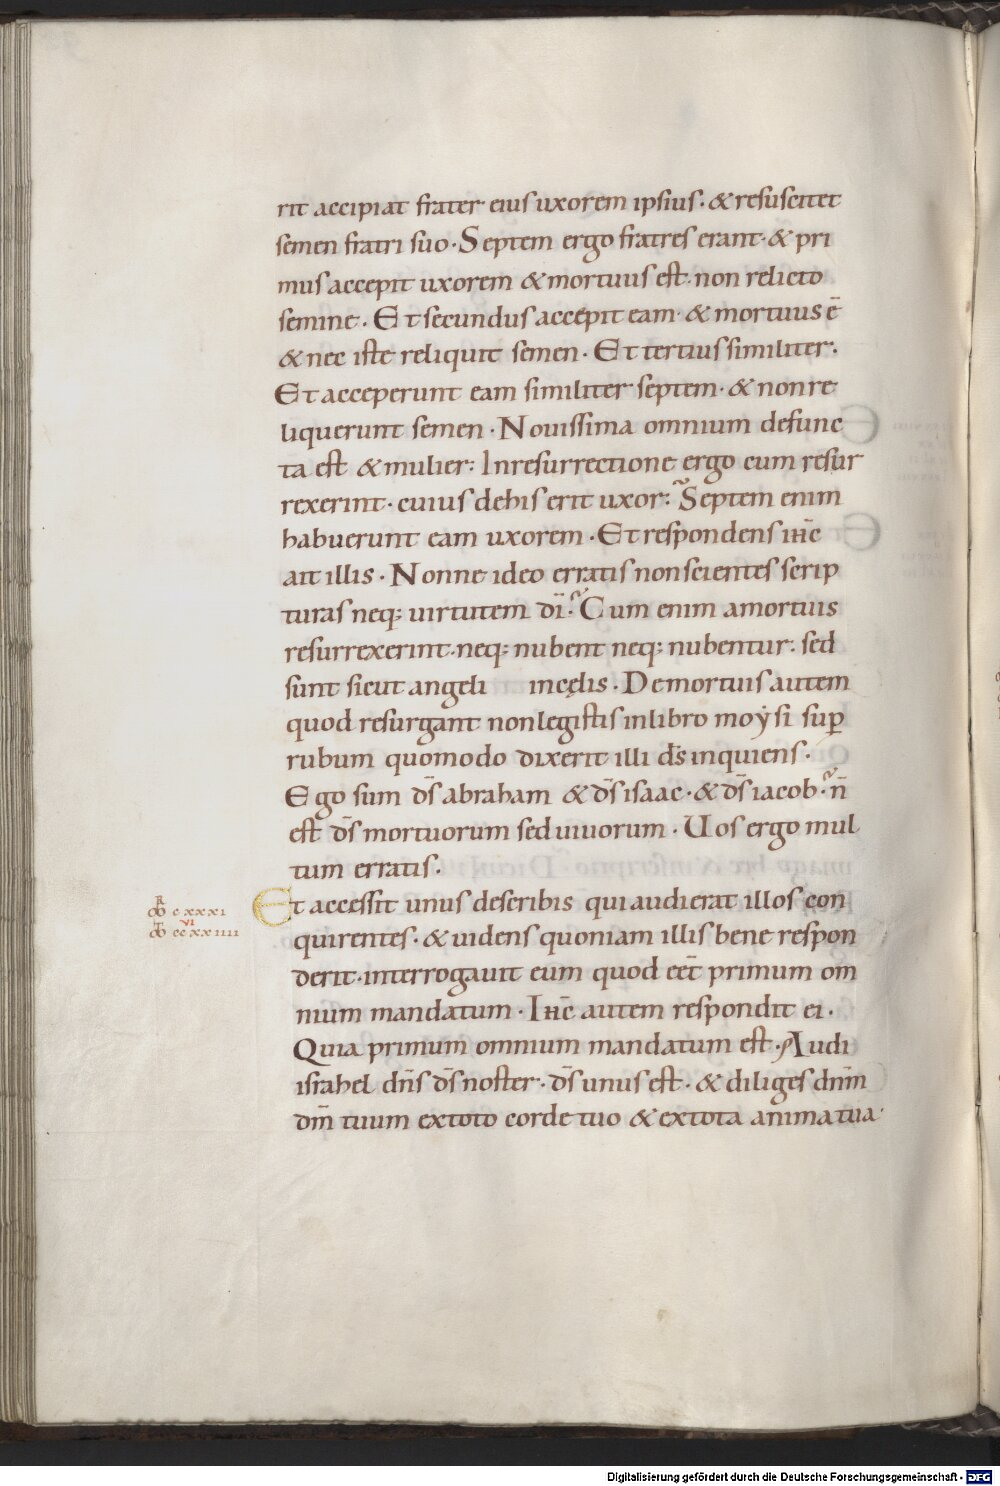 rit accipiat frater eius uxorem ipsius · & resuscitet
semen fratri suo · Septem ergo fratres erant · & pri
mus accepit uxorem & mortuus est · non relicto
semine · Et secundus accepit eam · & mortuus ē
& nec iste reliquit semen · Et tertius similiter ·
Et acceperunt eam similiter septem · & non re
liquerunt semen · Nouissima omnium defunc
ta est & mulier : In resurrectione ergo cum resur
rexerint · cuius de his erit uxor : Septem enim
habuerunt eam uxorem · Et respondens ihc̄
ait illis · Nonne ideo erratis non scientes scrip
turas neq; uirtutem dī · Cum enim a mortuis
resurrexerint · neq; nubent neq; nubentur : sed
sunt sicut angeli in cęlis · De mortuis autem
quod resurgant non legistis in libro moẏsi sup̄
rubum quomodo dixerit illi ds̄ inquiens ·
Ego sum ds̄ abraham & ds̄ isaac · & ds̄ iacob · n̄
est ds̄ mortuorum sed uiuorum · Uos ergo mul
tum erratis ·
Et accessit unus de scribis qui audierat illos con
R
cxxxi
quirentes · & uidens quoniam illis bene respon
VI
ccxxiiii
derit · interrogauit eum quod eēt primum om
nium mandatum · Ihc̄ autem respondit ei ·
Quia primum omnium mandatum est · Audi
israhel dn̄s ds̄ noster · ds̄ unus est · & diliges dn̄m
dm̄ tuum ex toto corde tuo & ex tota anima tua ·
Digitalisierung gefördert durch die Deutsche Forschungsgemeinschaft - DFG